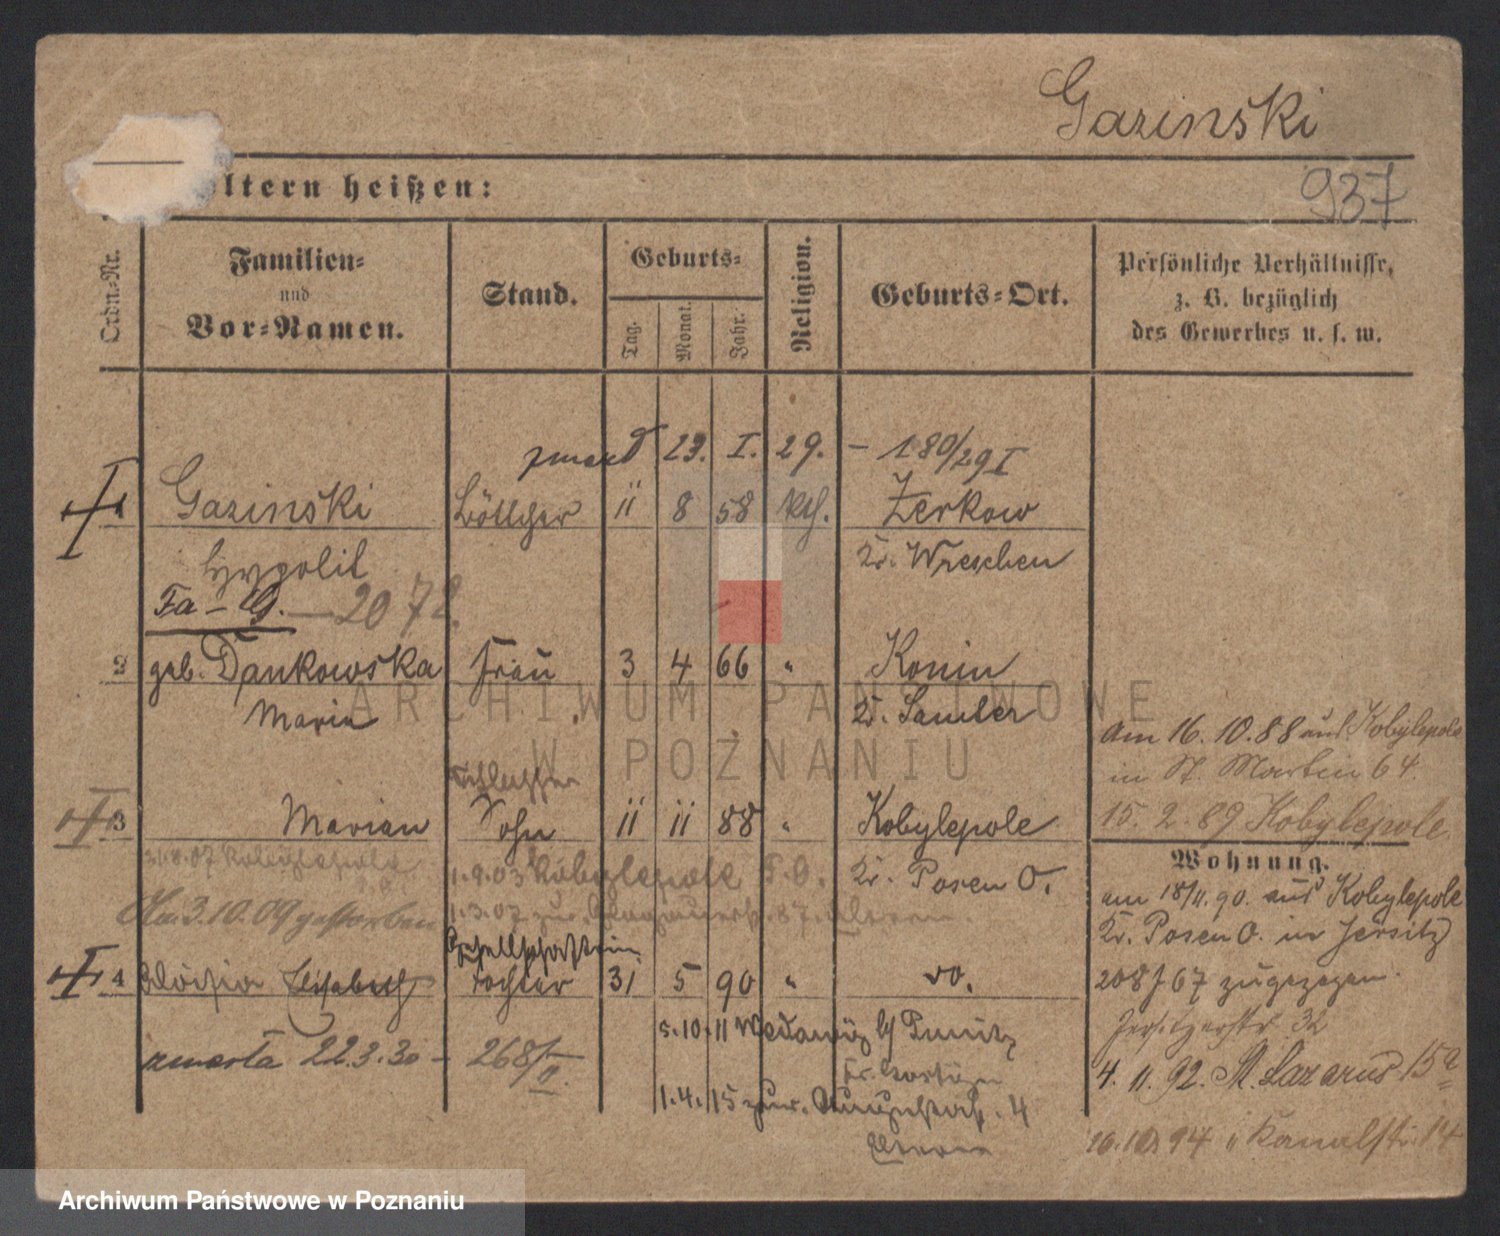 Gazinski
937
ltern heißen:
Ordn-Nr.
Familien-
und
Vor-Namen.
Stand.
Geburts-
Tag.
Monat.
Jahr.
Religion.
Geburts-Ort.
Persönliche Verhältnisse,
z. B. bezüglich
des Gewerbes u. s. w.
zmarł 23. I. 29. – 180/29 I
1 Gazinski Böttcher 11 8 58 kth. Zerkow
Hypolit Kr. Wreschen
Fa – G. — 2072.
2 geb. Dankowska Frau 3 4 66 " Konin
Maria Kr. Samter
am 16. 10. 88 aus Kobylepole
in St. Martin 64.
Schlosser
3 Marian Sohn 11 11 88 " Kobylepole
15. 2. 89 Kobylepole
31.8.07 Kobylepole
1.9.03 Kobylepole P.O. Kr. Posen O.
Wohnung.
am 18/11.90. aus Kobylepole
Am 3.10.09 gestorben
1.3.07 zur. 87. Eltern.
Kr. Posen O. in Jersitz
Gesellschafterin
4 Elisabeth Tochter 31 5 90 " do.
208/67 zugezogen.
5.10.11
Jersitzerstr. 32
zmarła 22.3.30 – 268/II.
4. 11. 92. St. Lazarus 15a
1.4.15 zur. Augustastr. 4
Eltern
26.10.94 " Kanalstr. 14
ARCHIWUM PAŃSTWOWE
W POZNANIU
Archiwum Państwowe w Poznaniu